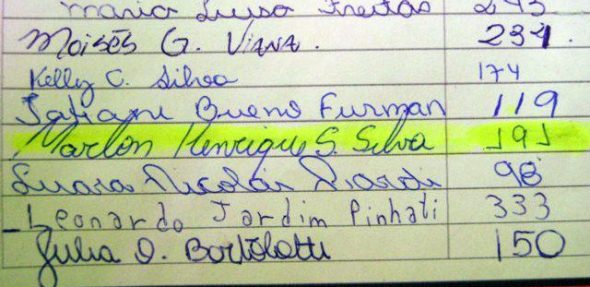 Maria Luisa Freitas 293
Moisés G. Viana. 234.
Kelly C. Silva 174
Tatiane Bueno Furman 119
Marlon Henrique S. Silva 191
Luara Nicolai 98
Leonardo Jardim Pinhati 333
Julia D. Bortolotti 150